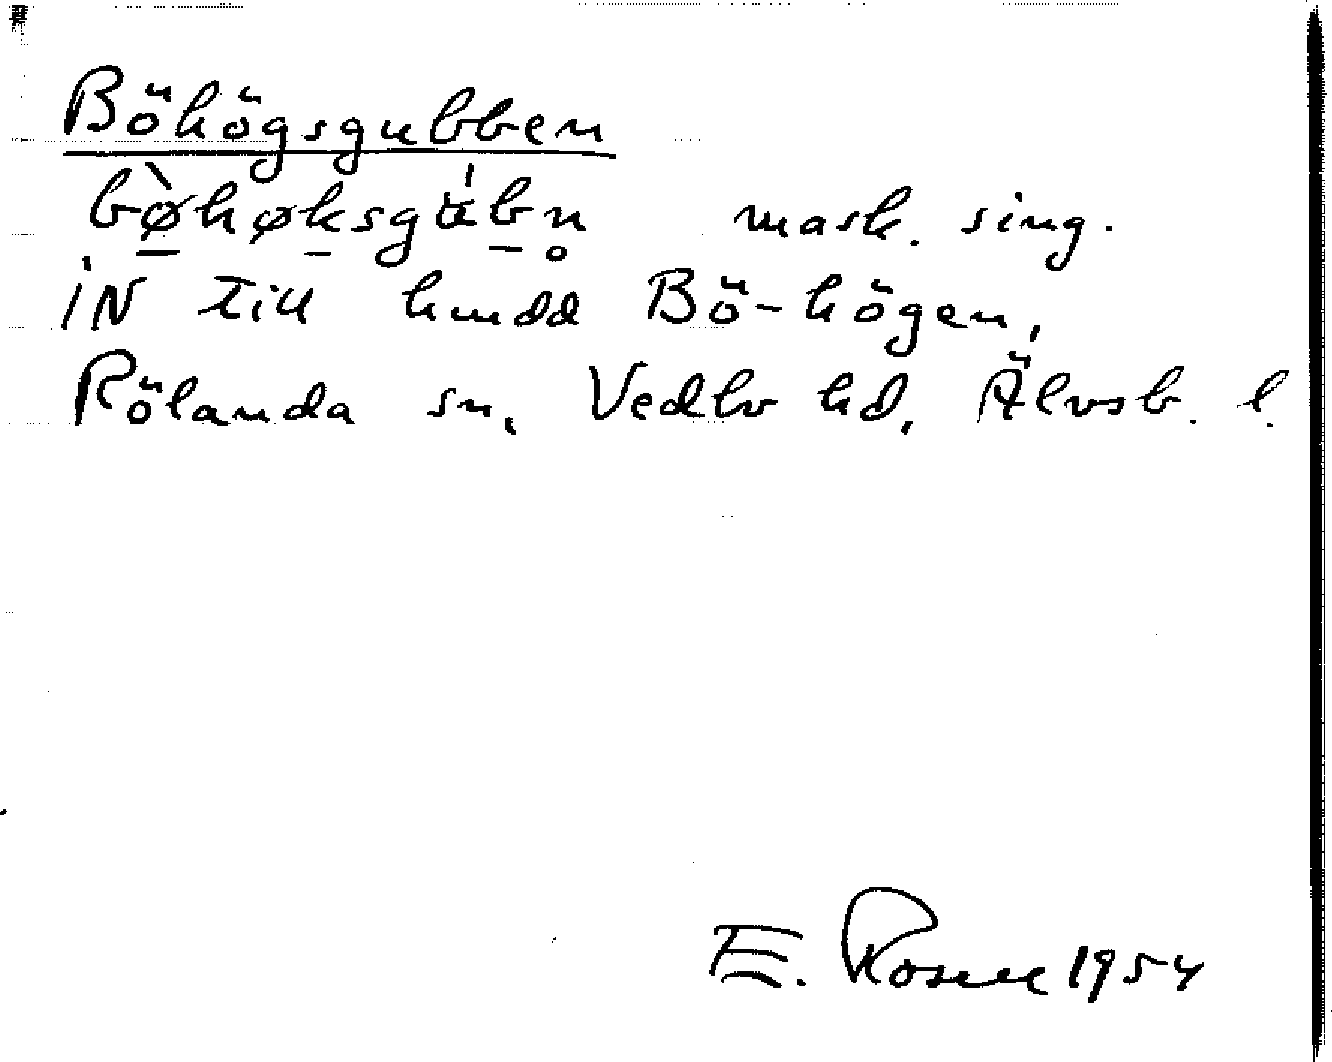 Böhögsgubben
bø̀høksgʉ́bn̥ mask. sing.
iN till hmdd Bö-högen,
Rölanda sn, Vedbo hd, Älvsb. l.
E. Rosell 1954